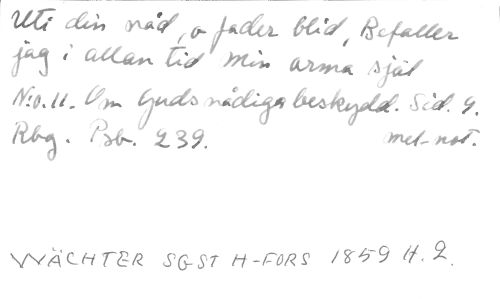 Uti din nåd, o fader blid, Befaller
jag i allan tid min arma själ
N:o. 11. Om Guds nådiga beskydd. Sid. 9.
Rbg. Psb. 239. mel-not.
WÄCHTER SGST H-FORS 1859 H. 2.